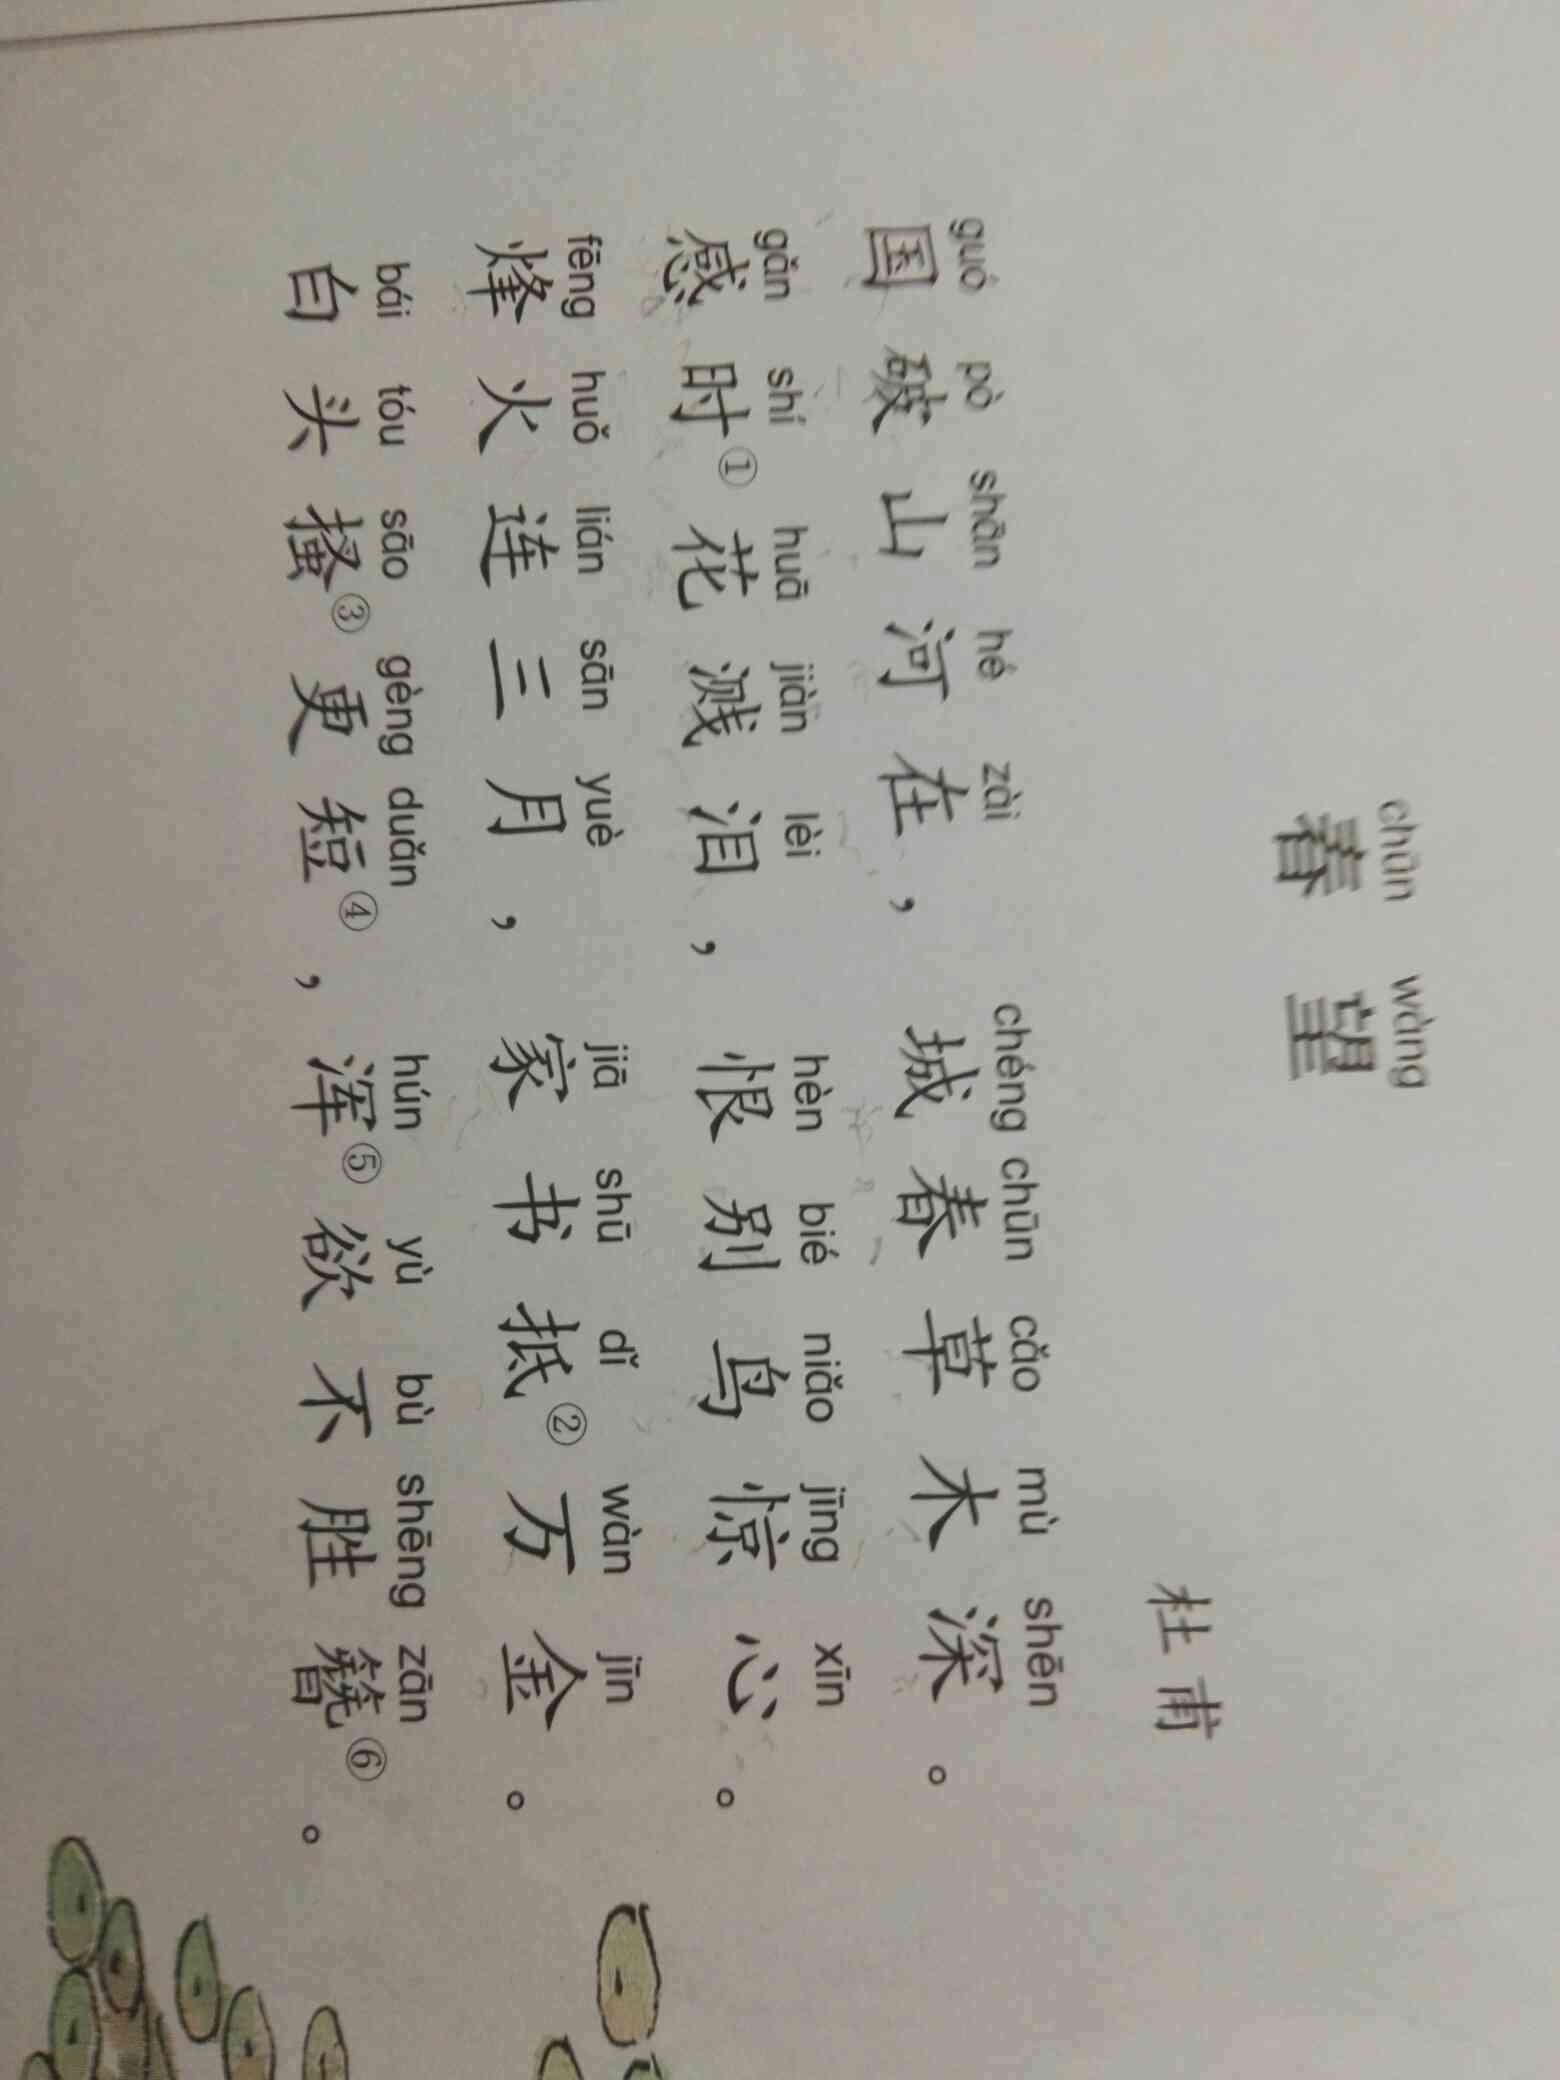 chūn wàng
春 望
杜 甫
guó pò shān hé zài chéng chūn cǎo mù shēn
国 破 山 河 在 ， 城 春 草 木 深 。
gǎn shí huā jiàn lèi hèn bié niǎo jīng xīn
感 时① 花 溅 泪 ， 恨 别 鸟 惊 心 。
fēng huǒ lián sān yuè jiā shū dǐ wàn jīn
烽 火 连 三 月 ， 家 书 抵② 万 金 。
bái tóu sāo gèng duǎn hún yù bù shēng zān
白 头 搔③ 更 短④ ， 浑⑤ 欲 不 胜 簪⑥ 。